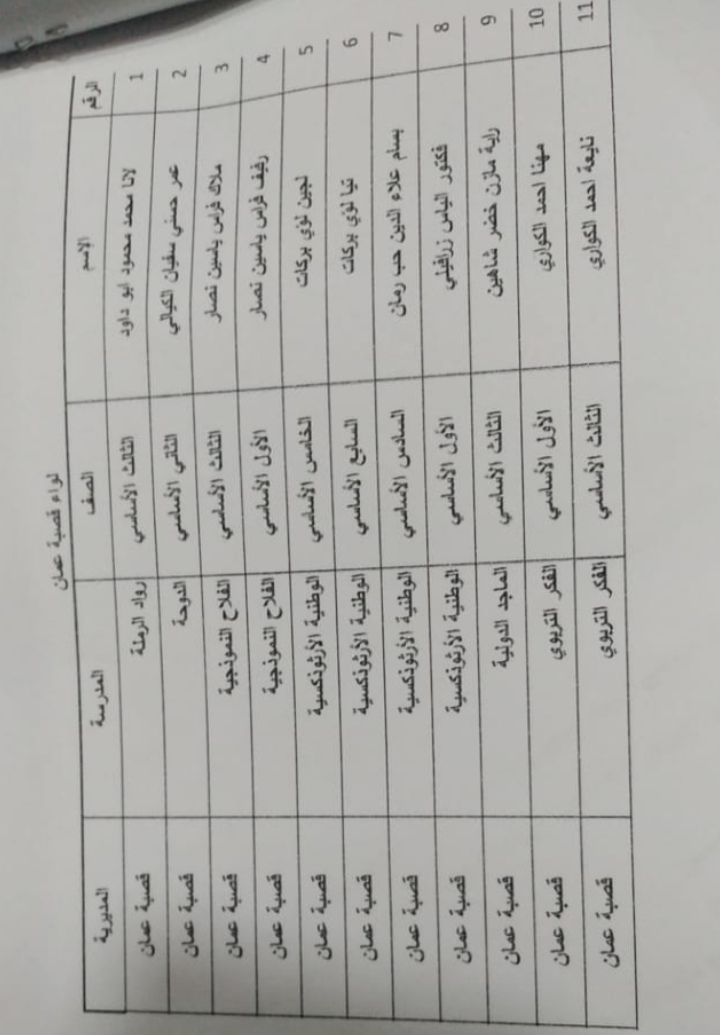 لواء قصبة عمان
الرقم الإسم الصف المدرسة المديرية
1 لانا محمد محمود ابو داود الثالث الأساسي رواد الرملة قصبة عمان
2 عمر حسني سفيان الكيالي الثاني الأساسي الدوحة قصبة عمان
3 ملاك فراس ياسين نصار الثالث الأساسي الفلاح النموذجية قصبة عمان
4 رفيف فراس ياسين نصار الأول الأساسي الفلاح النموذجية قصبة عمان
5 لجين لؤي بركات الخامس الأساسي الوطنية الأرثوذكسية قصبة عمان
6 تيا لؤي بركات السابع الأساسي الوطنية الأرثوذكسية قصبة عمان
7 بسام علاء الدين حب رمان السادس الأساسي الوطنية الأرثوذكسية قصبة عمان
8 فكتور الياس زرافيلي الأول الأساسي الوطنية الأرثوذكسية قصبة عمان
9 راية مازن خضر شاهين الثالث الأساسي الماجد الدولية قصبة عمان
10 مهنا احمد الكواري الأول الأساسي الفكر التربوي قصبة عمان
11 نايعة احمد الكواري الثالث الأساسي الفكر التربوي قصبة عمان